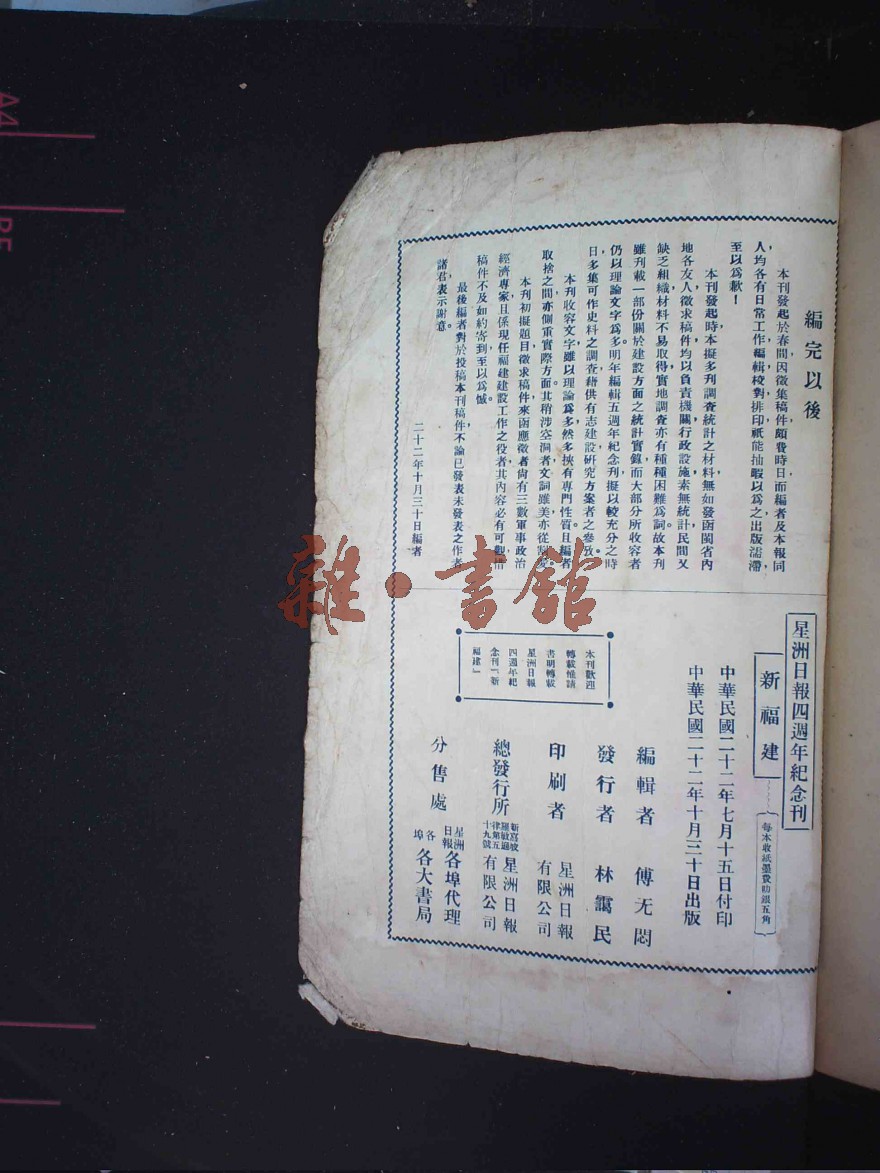 編完以後
本刊發起於春間,因徵集稿件頗費時日,而編者及本報同
人,均各有日常工作,編輯校對排印,祇能抽暇以爲之,出版濡滯,
至以爲歉!
本刊發起時,本擬多刊調查統計之材料,無如發函閩省內
地各友人徵求稿件,均以負責機關行政設施素無統計,民間又
缺乏組織,材料不易取得,實地調查,亦有種種困難爲詞,故本刊
雖刊載一部份關於建設方面之統計實錄,而大部分所收容者,
仍以理論文字爲多。明年編輯五週年紀念刊,擬以較充分之時
日,多集可作史料之調查,藉供有志建設研究方案者之參攷。
本刊收容文字,雖以理論爲多,然多挾有專門性質,且編者
取捨之間,亦側重實際方面。其稍涉空洞者,文詞雖美,亦從割愛。
本刊初擬題目,徵求稿件,來函應徵者,尙有三數軍事政治
經濟專家,且係現任福建建設工作之役者,其內容必有可觀,惜
稿件不及如約寄到,至以爲憾。
最後編者對於投稿本刊稿件,不論已發表未發表之作者
諸君,表示謝意。
二十二年十月三十日編者
星洲日報四週年紀念刊
新福建
每本收紙墨費叻銀五角
中華民國二十二年七月十五日付印
中華民國二十二年十月三十日出版
本刊歡迎
轉載惟請
書明轉載
星洲日報
四週年紀
念刊「新
福建」
編輯者 傅无悶
發行者 林靄民
印刷者 星洲日報有限公司
總發行所 新嘉坡羅敏申律第五十九號 星洲日報有限公司
分售處 星洲日報各埠代理
各埠各大書局
雜·書館
A4